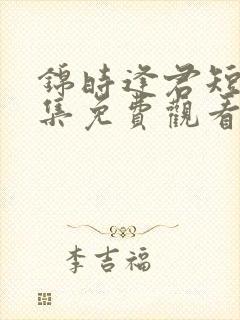 錦時逢君短
集免費觀看
李吉福